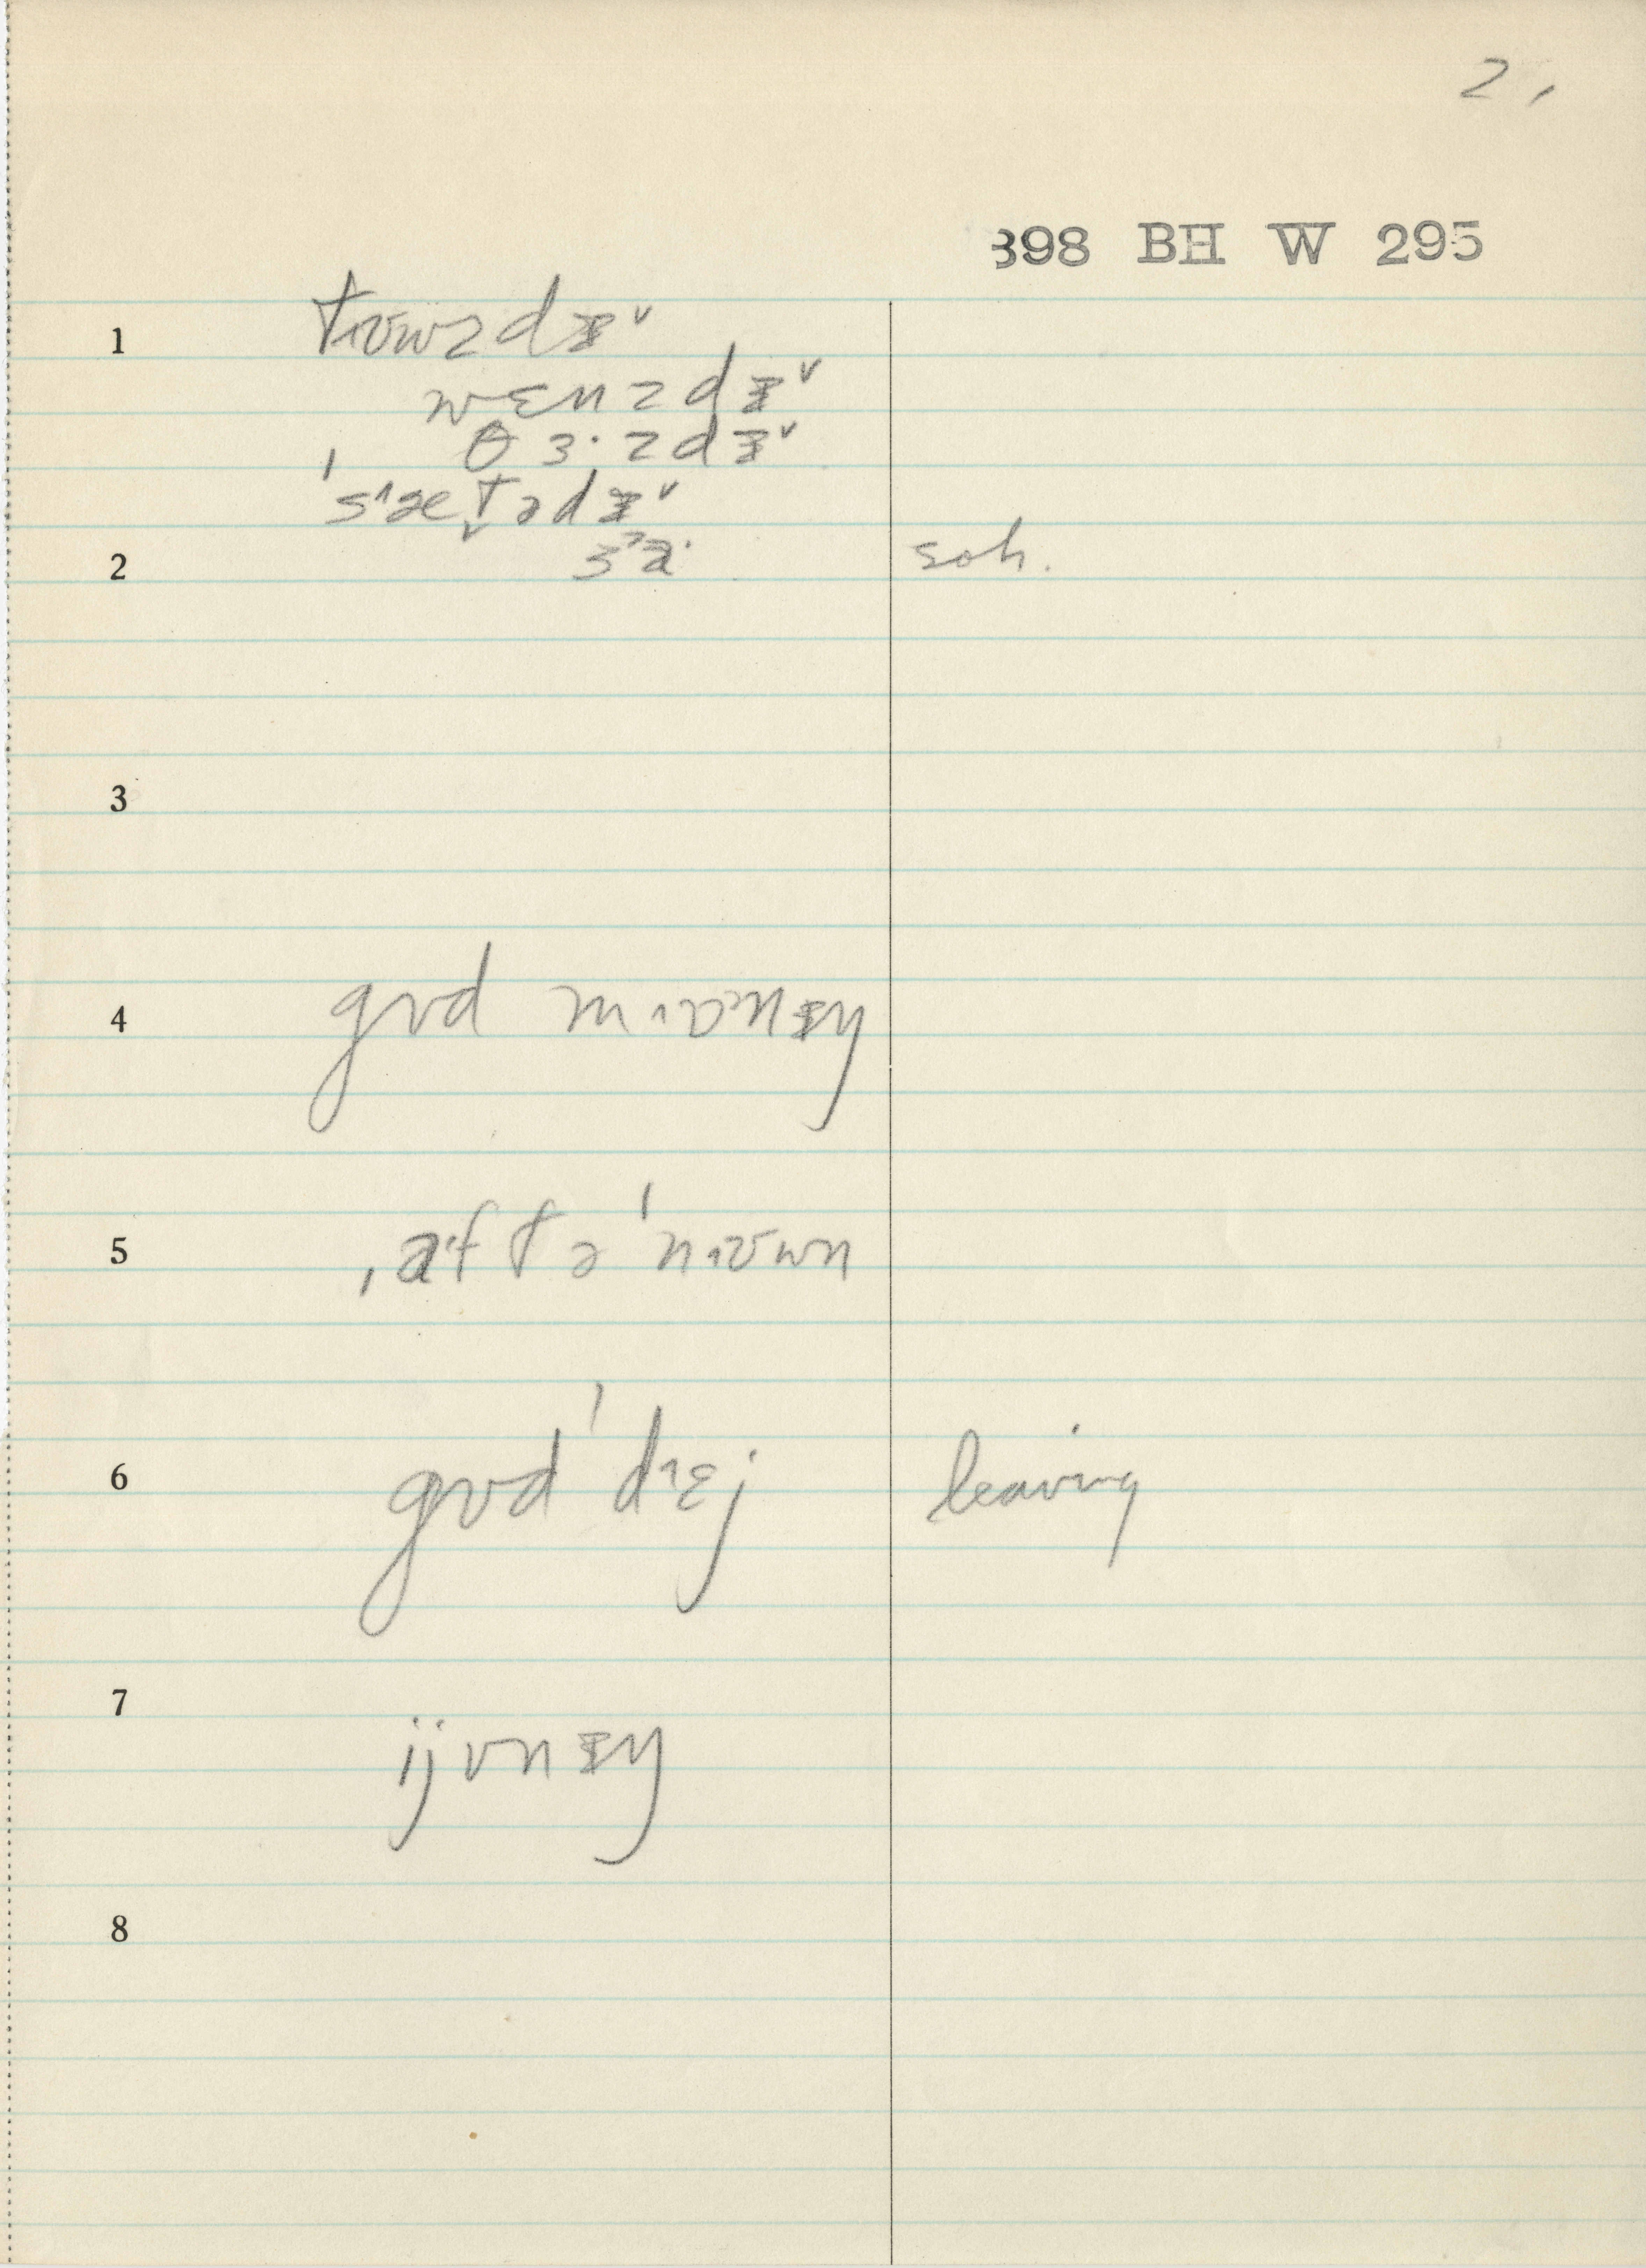 2,
398 BH W 295
1 tʊwzdɪ˅
wɛnzdɪ˅
θɜ·zdɪ˅
ˈsætədɪ˅
2 soh.
3
4 gʊd mɒnɪŋ
5 ˌaftəˈnʊwn
6 gʊdˈdɛj leaving
7 ijvnɪŋ
8